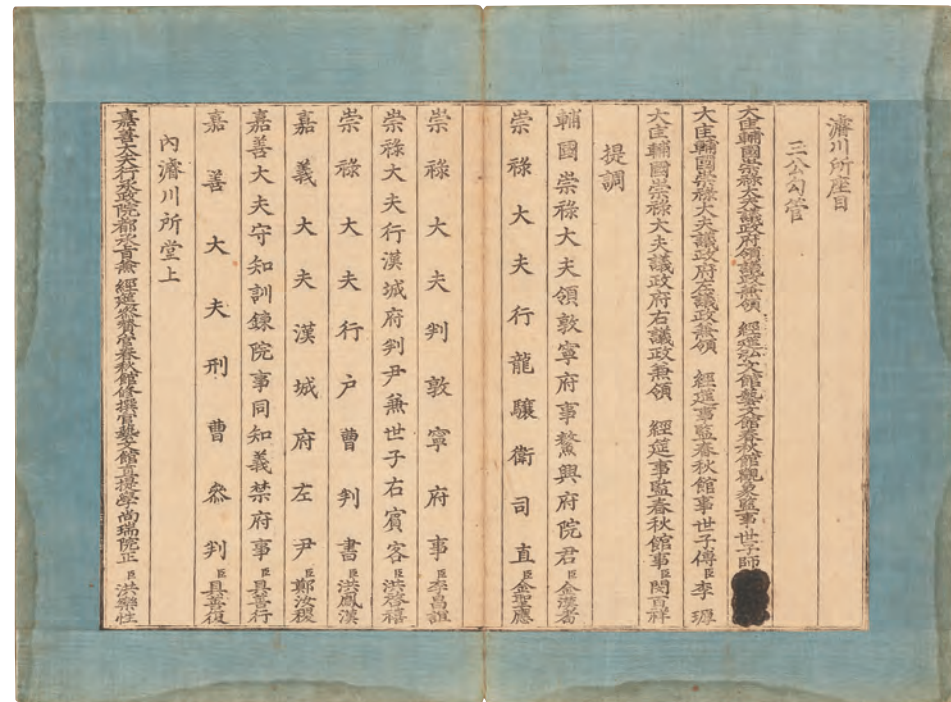 濬川所座目
三公勾管
大匡輔國崇祿大夫議政府領議政兼領 經筵弘文館藝文館春秋館觀象監事世子師
大匡輔國崇祿大夫議政府左議政兼領 經筵事監春秋館事世子傅臣李㻐
大匡輔國崇祿大夫議政府右議政兼領 經筵事監春秋館事臣閔百祥
提調
輔國崇祿大夫領敦寧府事鰲興府院君臣金漢耉
崇祿大夫行龍驤衛司直臣金聖應
崇祿大夫判敦寧府事臣李昌誼
崇祿大夫行漢城府判尹兼世子右賓客臣洪啓禧
崇祿大夫行戶曹判書臣洪鳳漢
嘉義大夫漢城府左尹臣鄭汝稷
嘉善大夫守知訓鍊院事同知義禁府事臣具善行
嘉善大夫刑曹參判臣具善復
內濬川所堂上
嘉善大夫行承政院都承旨兼 經筵參贊官春秋館修撰官藝文館直提學尚瑞院正臣洪樂性